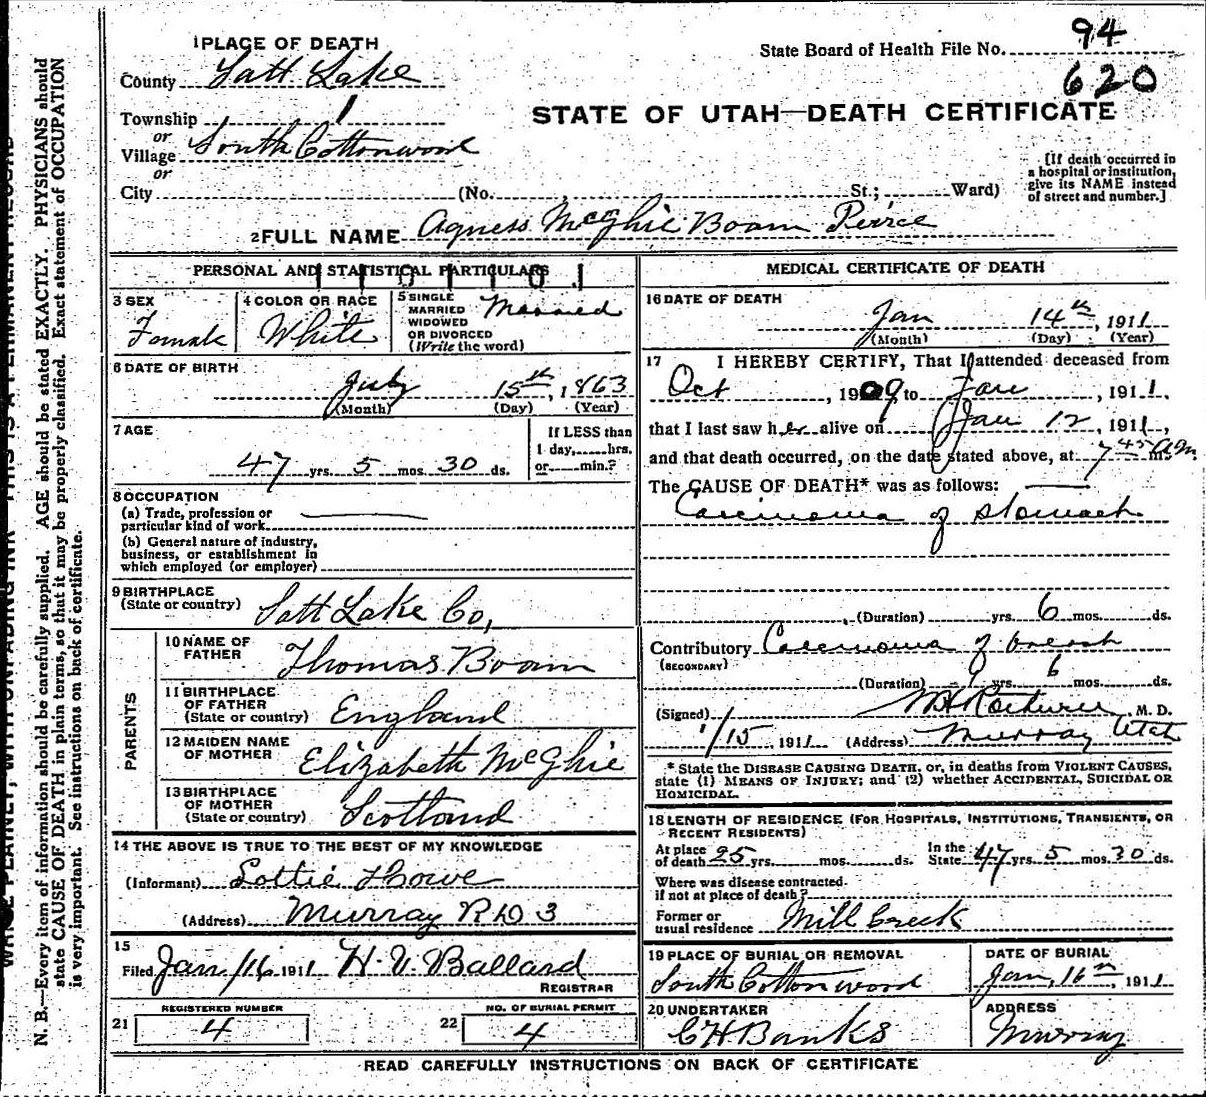 WRITE PLAINLY, WITH UNFADING INK—THIS IS A PERMANENT RECORD
N. B.—Every item of information should be carefully supplied. AGE should be stated EXACTLY. PHYSICIANS should
state CAUSE OF DEATH in plain terms, so that it may be properly classified. Exact statement of OCCUPATION
is very important. See instructions on back of certificate.
1 PLACE OF DEATH
State Board of Health File No. 94
620
County Salt Lake
STATE OF UTAH—DEATH CERTIFICATE
Township 1
or
Village South Cottonwood
or
City (No. St.; Ward)
[If death occurred in
a hospital or institution,
give its NAME instead
of street and number.]
2 FULL NAME Agness McGhie Boam Peirce
PERSONAL AND STATISTICAL PARTICULARS
3 SEX
Female
4 COLOR OR RACE
White
5 SINGLE
MARRIED
WIDOWED
OR DIVORCED
(Write the word)
Married
6 DATE OF BIRTH
July 15th, 1863
(Month) (Day) (Year)
7 AGE
47 yrs. 5 mos. 30 ds.
If LESS than
1 day, hrs.
or min.?
8 OCCUPATION
(a) Trade, profession or
particular kind of work
(b) General nature of industry,
business, or establishment in
which employed (or employer)
9 BIRTHPLACE
(State or country) Salt Lake Co,
PARENTS
10 NAME OF
FATHER Thomas Boam
11 BIRTHPLACE
OF FATHER
(State or country) England
12 MAIDEN NAME
OF MOTHER Elizabeth McGhie
13 BIRTHPLACE
OF MOTHER
(State or country) Scotland
14 THE ABOVE IS TRUE TO THE BEST OF MY KNOWLEDGE
(Informant) Lottie Howe
(Address) Murray R D 3
15
Filed Jan/16 1911 H. V. Ballard
REGISTRAR
REGISTERED NUMBER
21 4
NO. OF BURIAL PERMIT
22 4
MEDICAL CERTIFICATE OF DEATH
16 DATE OF DEATH
Jan 14th, 1911
(Month) (Day) (Year)
17 I HEREBY CERTIFY, That I attended deceased from
Oct, 1909, to Jan, 1911,
that I last saw her alive on Jan 12, 1911,
and that death occurred, on the date stated above, at 7 45 a m.
The CAUSE OF DEATH* was as follows:
Carcinoma of stomach
(Duration) yrs. 6 mos. ds.
Contributory Carcinoma of breast
(SECONDARY)
(Duration) 1 yrs. 6 mos. ds.
(Signed) M. D.
1/15, 1911 (Address) Murray Utah
* State the DISEASE CAUSING DEATH, or, in deaths from VIOLENT CAUSES,
state (1) MEANS OF INJURY; and (2) whether ACCIDENTAL, SUICIDAL OR
HOMICIDAL.
18 LENGTH OF RESIDENCE (FOR HOSPITALS, INSTITUTIONS, TRANSIENTS, OR
RECENT RESIDENTS)
At place
of death 25 yrs. mos. ds.
In the
State 47 yrs. 5 mos. 30 ds.
Where was disease contracted
if not at place of death?
Former or
usual residence Mill Creek
19 PLACE OF BURIAL OR REMOVAL
South Cottonwood
DATE OF BURIAL
Jan, 16th, 1911
20 UNDERTAKER
C H Banks
ADDRESS
Murray
READ CAREFULLY INSTRUCTIONS ON BACK OF CERTIFICATE